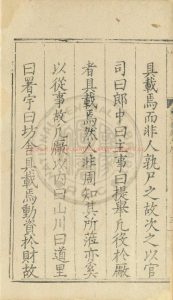 具載焉而非人孰尸之故次之以官
司曰郎中曰主事曰提舉凡役於厰
者具載焉然人非周知其所涖亦奚
以從事故凡厰以內曰山川曰道里
曰署宇曰坊舍具載焉動資於財故